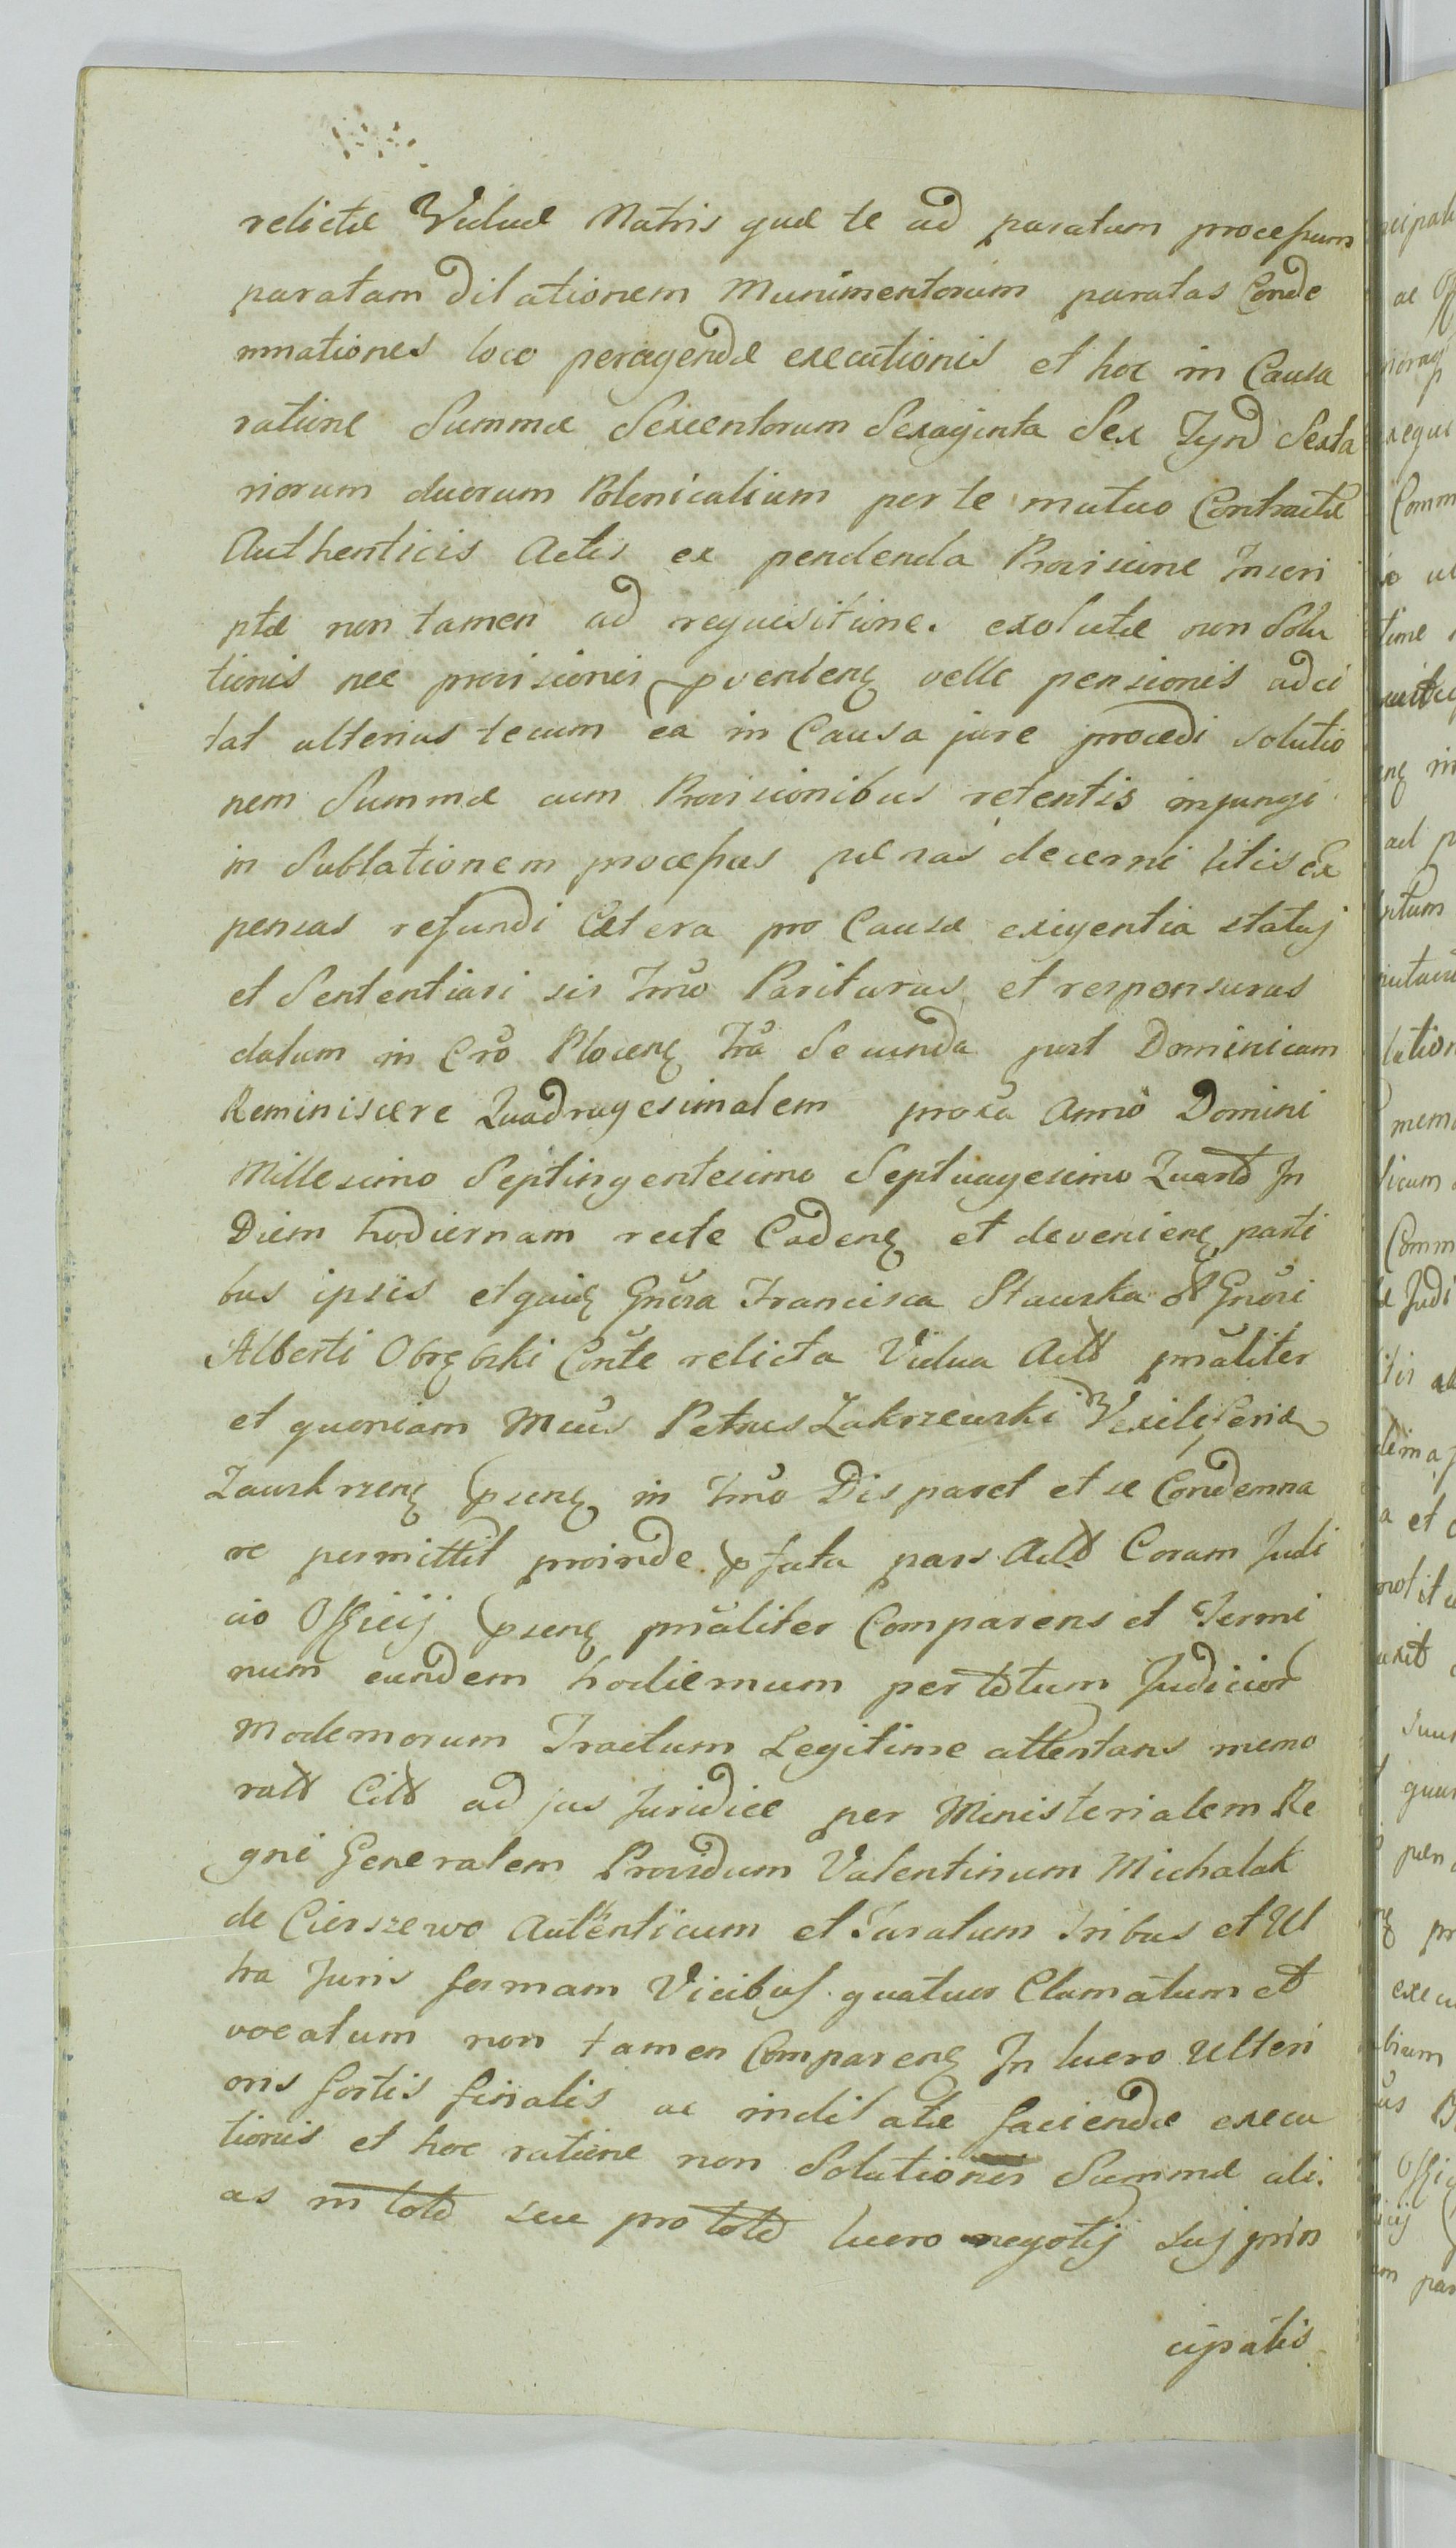 relictæ Viduæ Matris quæ te ad paratum processum
paratam dilationem Munimentorum paratas Conde
mnationes loco peragendæ executionis et hoc in Causa
ratione Summæ Sexcentorum Sexaginta Sex Tynd Sexta
riorum duorum Polonicalium per te mutuo Contractæ
Authenticis Actis ex pendenda Provisione Inscri
ptæ non tamen ad requisitione. exolutæ non Solu
tionis nec provisionis velle pensionis adci
tat ulterius tecum ea in Causa jure procedi solutio
nem Summæ cum Provisionibus retentis injungi
in Sublationem processus pænas decerni litis ex
pensas refundi Cætera pro Causæ exigentia statuj
et Sententiari sis Tmo Pariturus et responsurus
datum in Cro Plocen Fra Secunda post Dominicam
Reminiscere Quadragesimalem proxa Anno Domini
Millesimo Septingentesimo Septuagesimo Quarto In
Diem hodiernam recte Caden et devenien parti
bus ipsis Gnosa Francisca Stawska Gnosi
Alberti Obrębski Conte relicta Vidua Act pnaliter
et quoniam Mcus Petrus Zakrzewski Vexiliferid
Zawskrzen psens in Tmo Disparet et se Condemna
re permittit proinde pfata pars Act Coram Judi
cio Officij psens pnaliter Comparens et Termi
num eundem hodiernum per totum Judicior
Modernorum Tractum Legitime attentans memo
rat Cit ad jus Juridice per Ministerialem Re
gni Generalem Providum Valentinum Michalak
de Cierszewo Autenticum et Juratum tribus et Ul
tra Juris formam Vicibus quatuor Clamatum et
vocatum non tamen Comparen In lucro Ulteri
oris fortis finalis ac indilatæ faciendæ execu
tionis et hoc ratione non Solutionis Summæ ali.
as in toto seu pro toto lucro negotij suj prin
cipalis